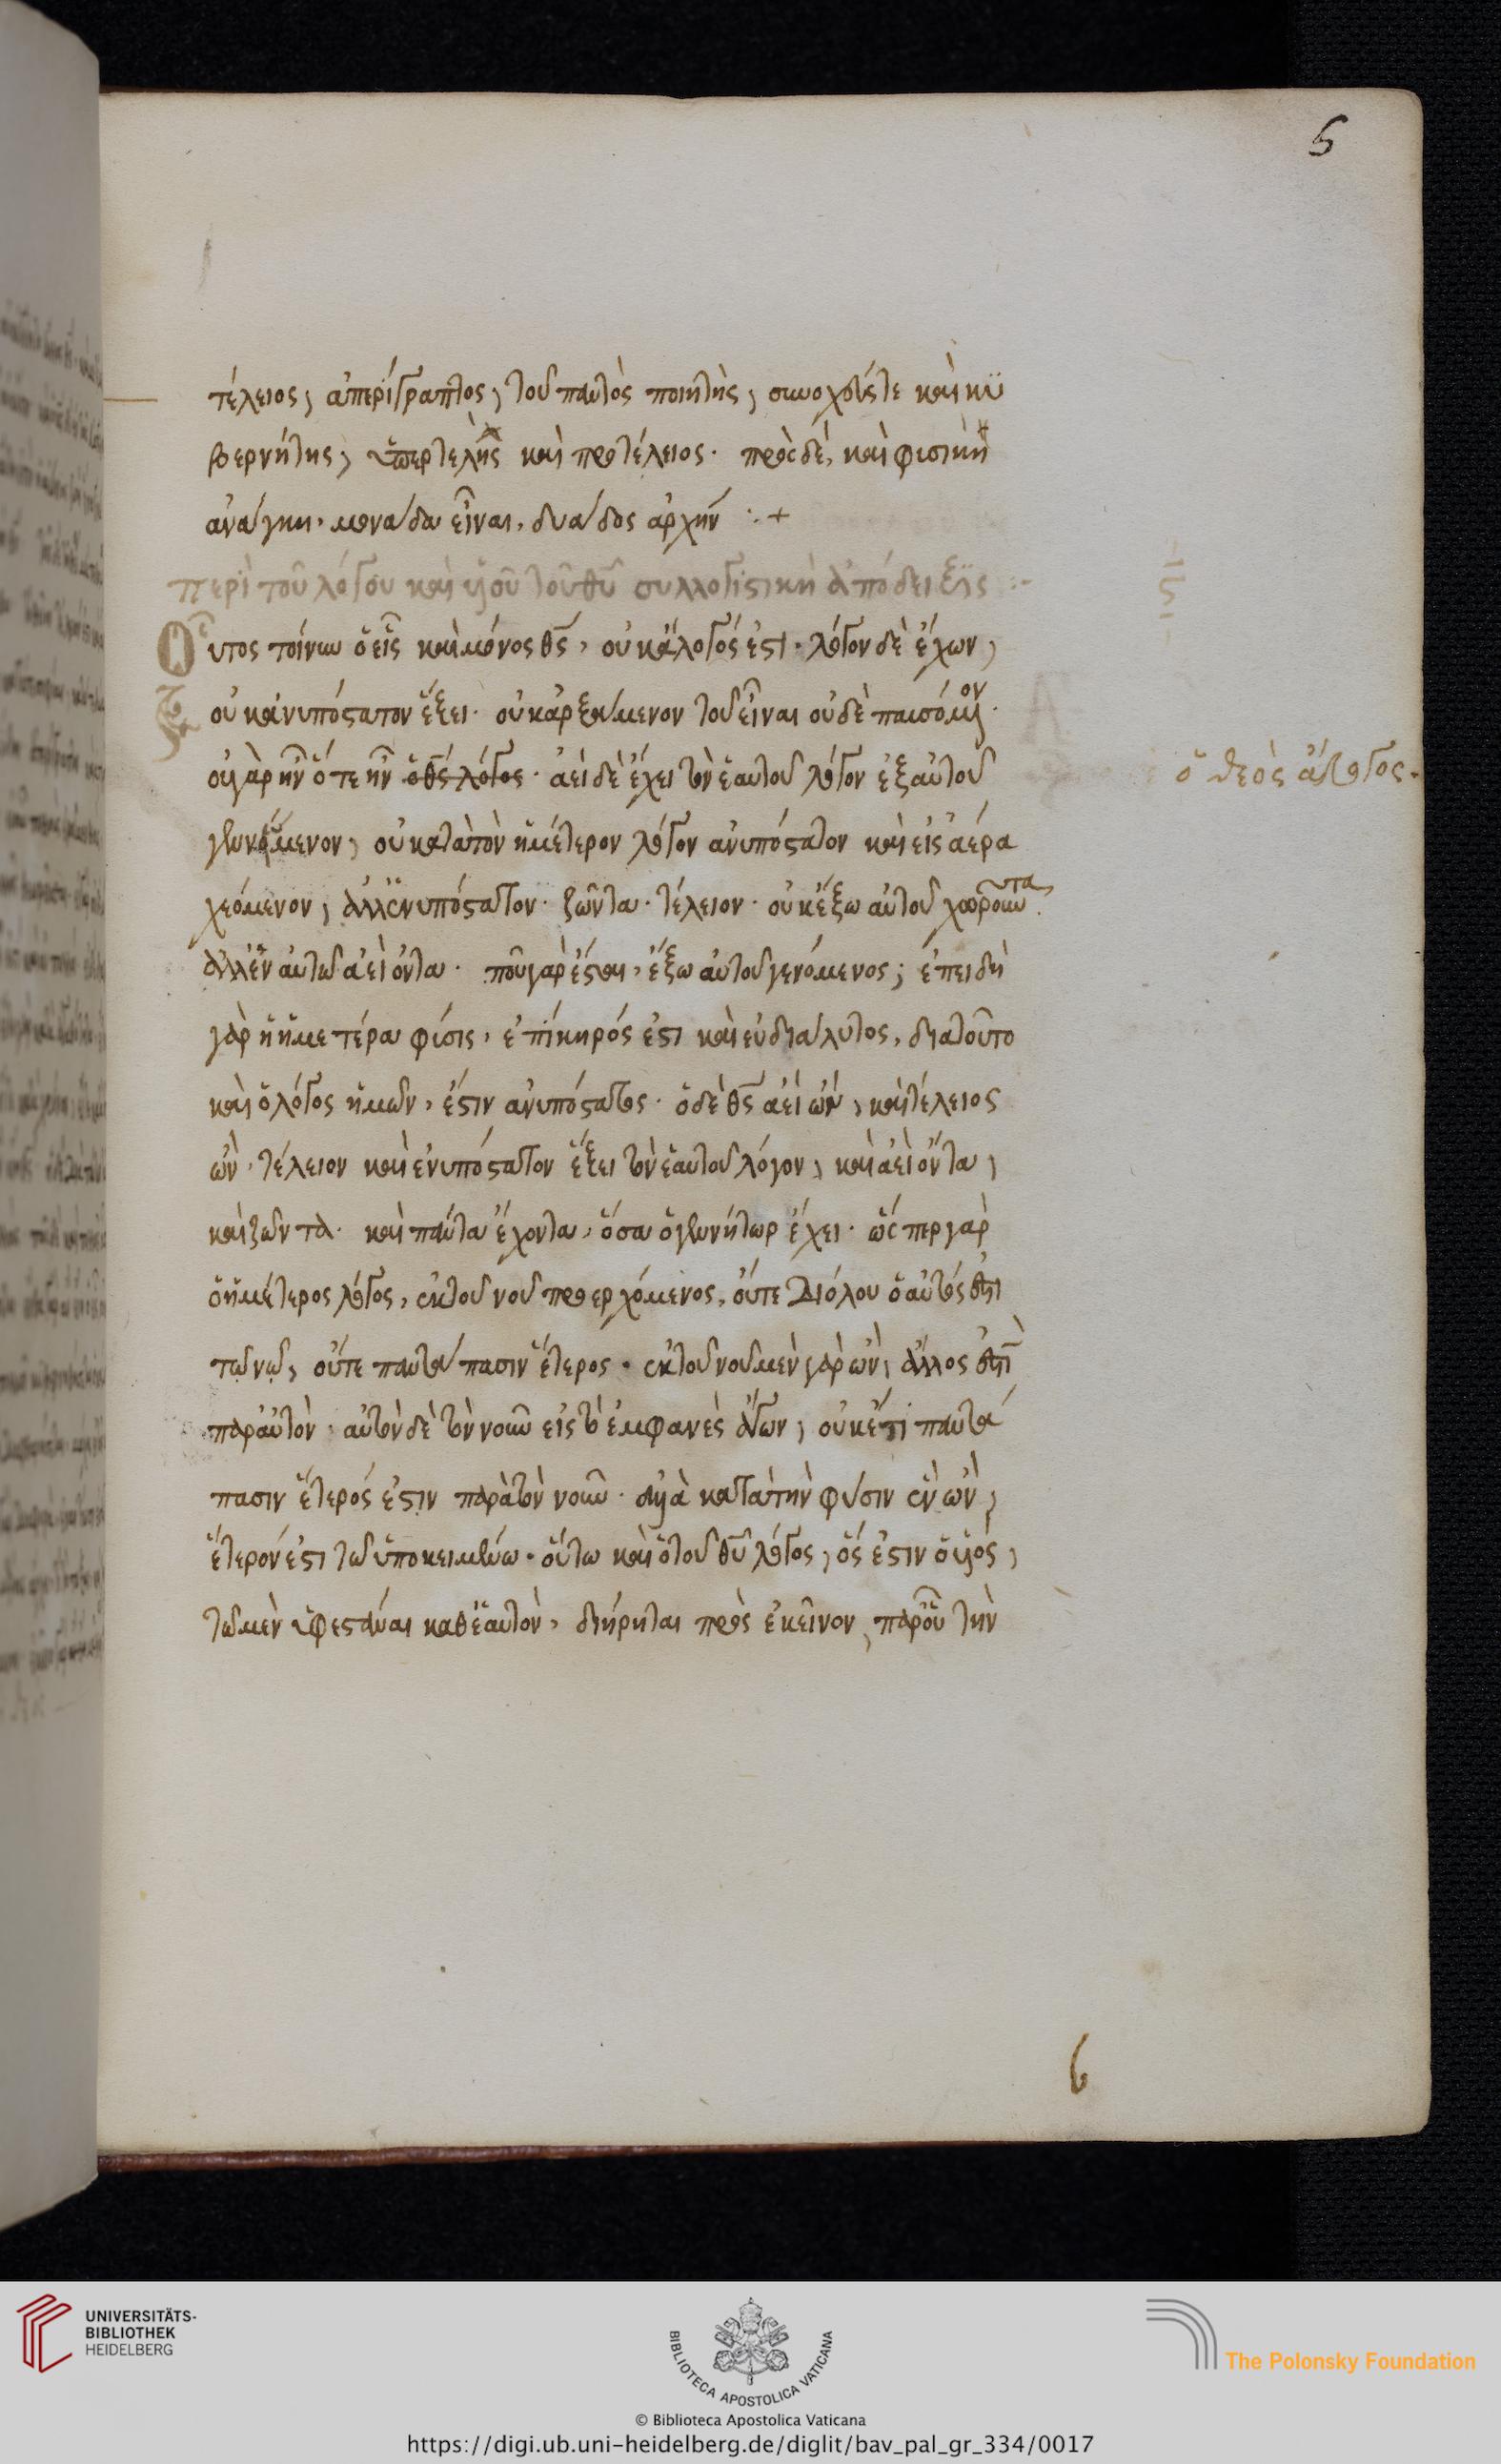 5
τέλειος, ἀπερίγραπτος, τοῦ παντὸς ποιητὴς, συνοχεύς τε καὶ κυ
βερνήτης, ὑπερτελὴς καὶ προτέλειος. πρὸς δέ, καὶ φισικὴ
ἀνάγκη, μονάδα εἶναι, δυάδος ἀρχήν :+
περὶ τοῦ λόγου καὶ υἱοῦ τοῦ θυ συλλογιστικὴ ἀπόδειξις :-
Οὗτος τοίνυν ὁ εἷς καὶ μόνος θς, οὐκ ἄλογός ἐστι. λόγον δὲ ἔχων,
οὐκ ἀνυπόστατον ἕξει. οὐκ ἀρξάμενον τοῦ εἶναι οὐδὲ παυσόμενον.
οὐ γὰρ ἦν ὅτε ἦν ὁ θς λόγος. ἀεὶ δὲ ἔχει τὸν ἑαυτοῦ λόγον ἐξ αὐτοῦ
ὁ θεὸς ἄλογος.
γεννώμενον, οὐ κατὰ τὸν ἡμέτερον λόγον ἀνυπόστατον καὶ εἰς ἀέρα
χεόμενον, ἀλλ' ἐνυπόστατον. ζῶντα. τέλειον. οὐκ ἔξω αὐτοῦ χωροῦντα.
ἀλλ' ἐν αὐτῶ ἀεὶ ὄντα. ποῦ γὰρ ἔσται, ἔξω αὐτοῦ γενόμενος; ἐπειδὴ
γὰρ ἡ ἡμετέρα φίσις, ἐπίκηρός ἐστι καὶ εὐδιάλυτος, διατοῦτο
καὶ ὁ λόγος ἡμῶν, ἐστιν ἀνυπόστατος. ὁ δὲ θς ἀεὶ ὢν, καὶ τέλειος
ὢν. τέλειον καὶ ἐνυπόστατον ἕξει τὸν ἑαυτοῦ λόγον, καὶ ἀεὶ ὄντα,
καὶ ζῶντα. καὶ πάντα ἔχοντα, ὅσα ὁ γεννήτωρ ἔχει. ὥσπερ γὰρ
ὁ ἡμέτερος λόγος, ἐκ τοῦ νοῦ προερχόμενος, οὔτε διόλου ὁ αὐτός ἐστι
τῶ νῶ, οὔτε παντάπασιν ἕτερος. ἐκ τοῦ νοῦ μὲν γὰρ ὢν, ἄλλος ἐστὶ
παρ' αὐτὸν. αὐτὸν δὲ τὸν νοῦν εἰς τὸ ἐμφανὲς ἄγων, οὐκέτι παντά
πασιν ἕτερός ἐστιν παρὰ τὸν νοῦν. ἀλλὰ κατὰ τὴν φύσιν ἓν ὢν,
ἕτερόν ἐστι τῶ ὑποκειμένω. οὕτω καὶ ὁ τοῦ θυ λόγος, ὅς ἐστιν ὁ υἱός,
τῶ μὲν ὑφεστάναι καθ' ἑαυτὸν, διήρηται πρὸς ἐκεῖνον, παρ' οὗ τὴν
6
UNIVERSITÄTS-
BIBLIOTHEK
HEIDELBERG
BIBLIOTECA APOSTOLICA VATICANA
The Polonsky Foundation
© Biblioteca Apostolica Vaticana
https://digi.ub.uni-heidelberg.de/diglit/bav_pal_gr_334/0017